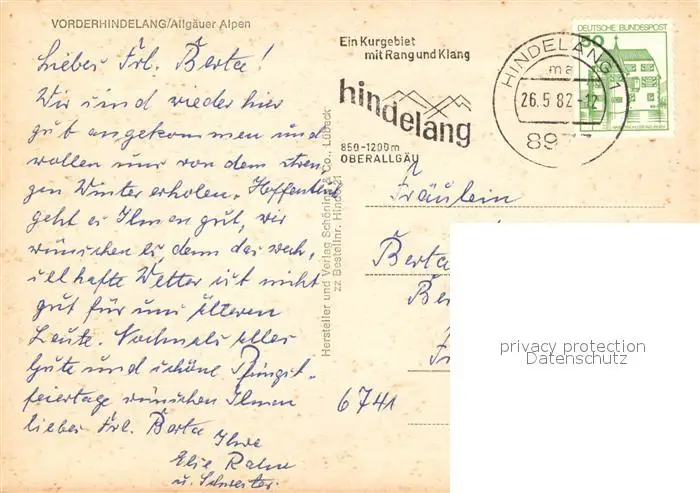 VORDERHINDELANG/Allgäuer Alpen
Liebes Frl. Berta!
Wir sind wieder hier
gut angekommen und
wollen uns von dem stren-
gen Winter erholen. Hoffentlich
geht es Ihnen gut, wir
wünschen es, denn das wech-
selhafte Wetter ist nicht
gut für uns älteren
Leute. Nochmals alles
Gute und schöne Pfingst-
feiertage wünschen Ihnen
liebes Frl. Berta
Ihre
Elie
u. Schwester.
Hersteller und Verlag Schöning & Co., Lübeck
zz Bestellnr. Hind
Ein Kurgebiet
mit Rang und Klang
hindelang
850-1200m
OBERALLGÄU
HINDELANG 1
ma
26.5.82-12
897
DEUTSCHE BUNDESPOST
Fräulein
Berta
6741
privacy protection
Datenschutz